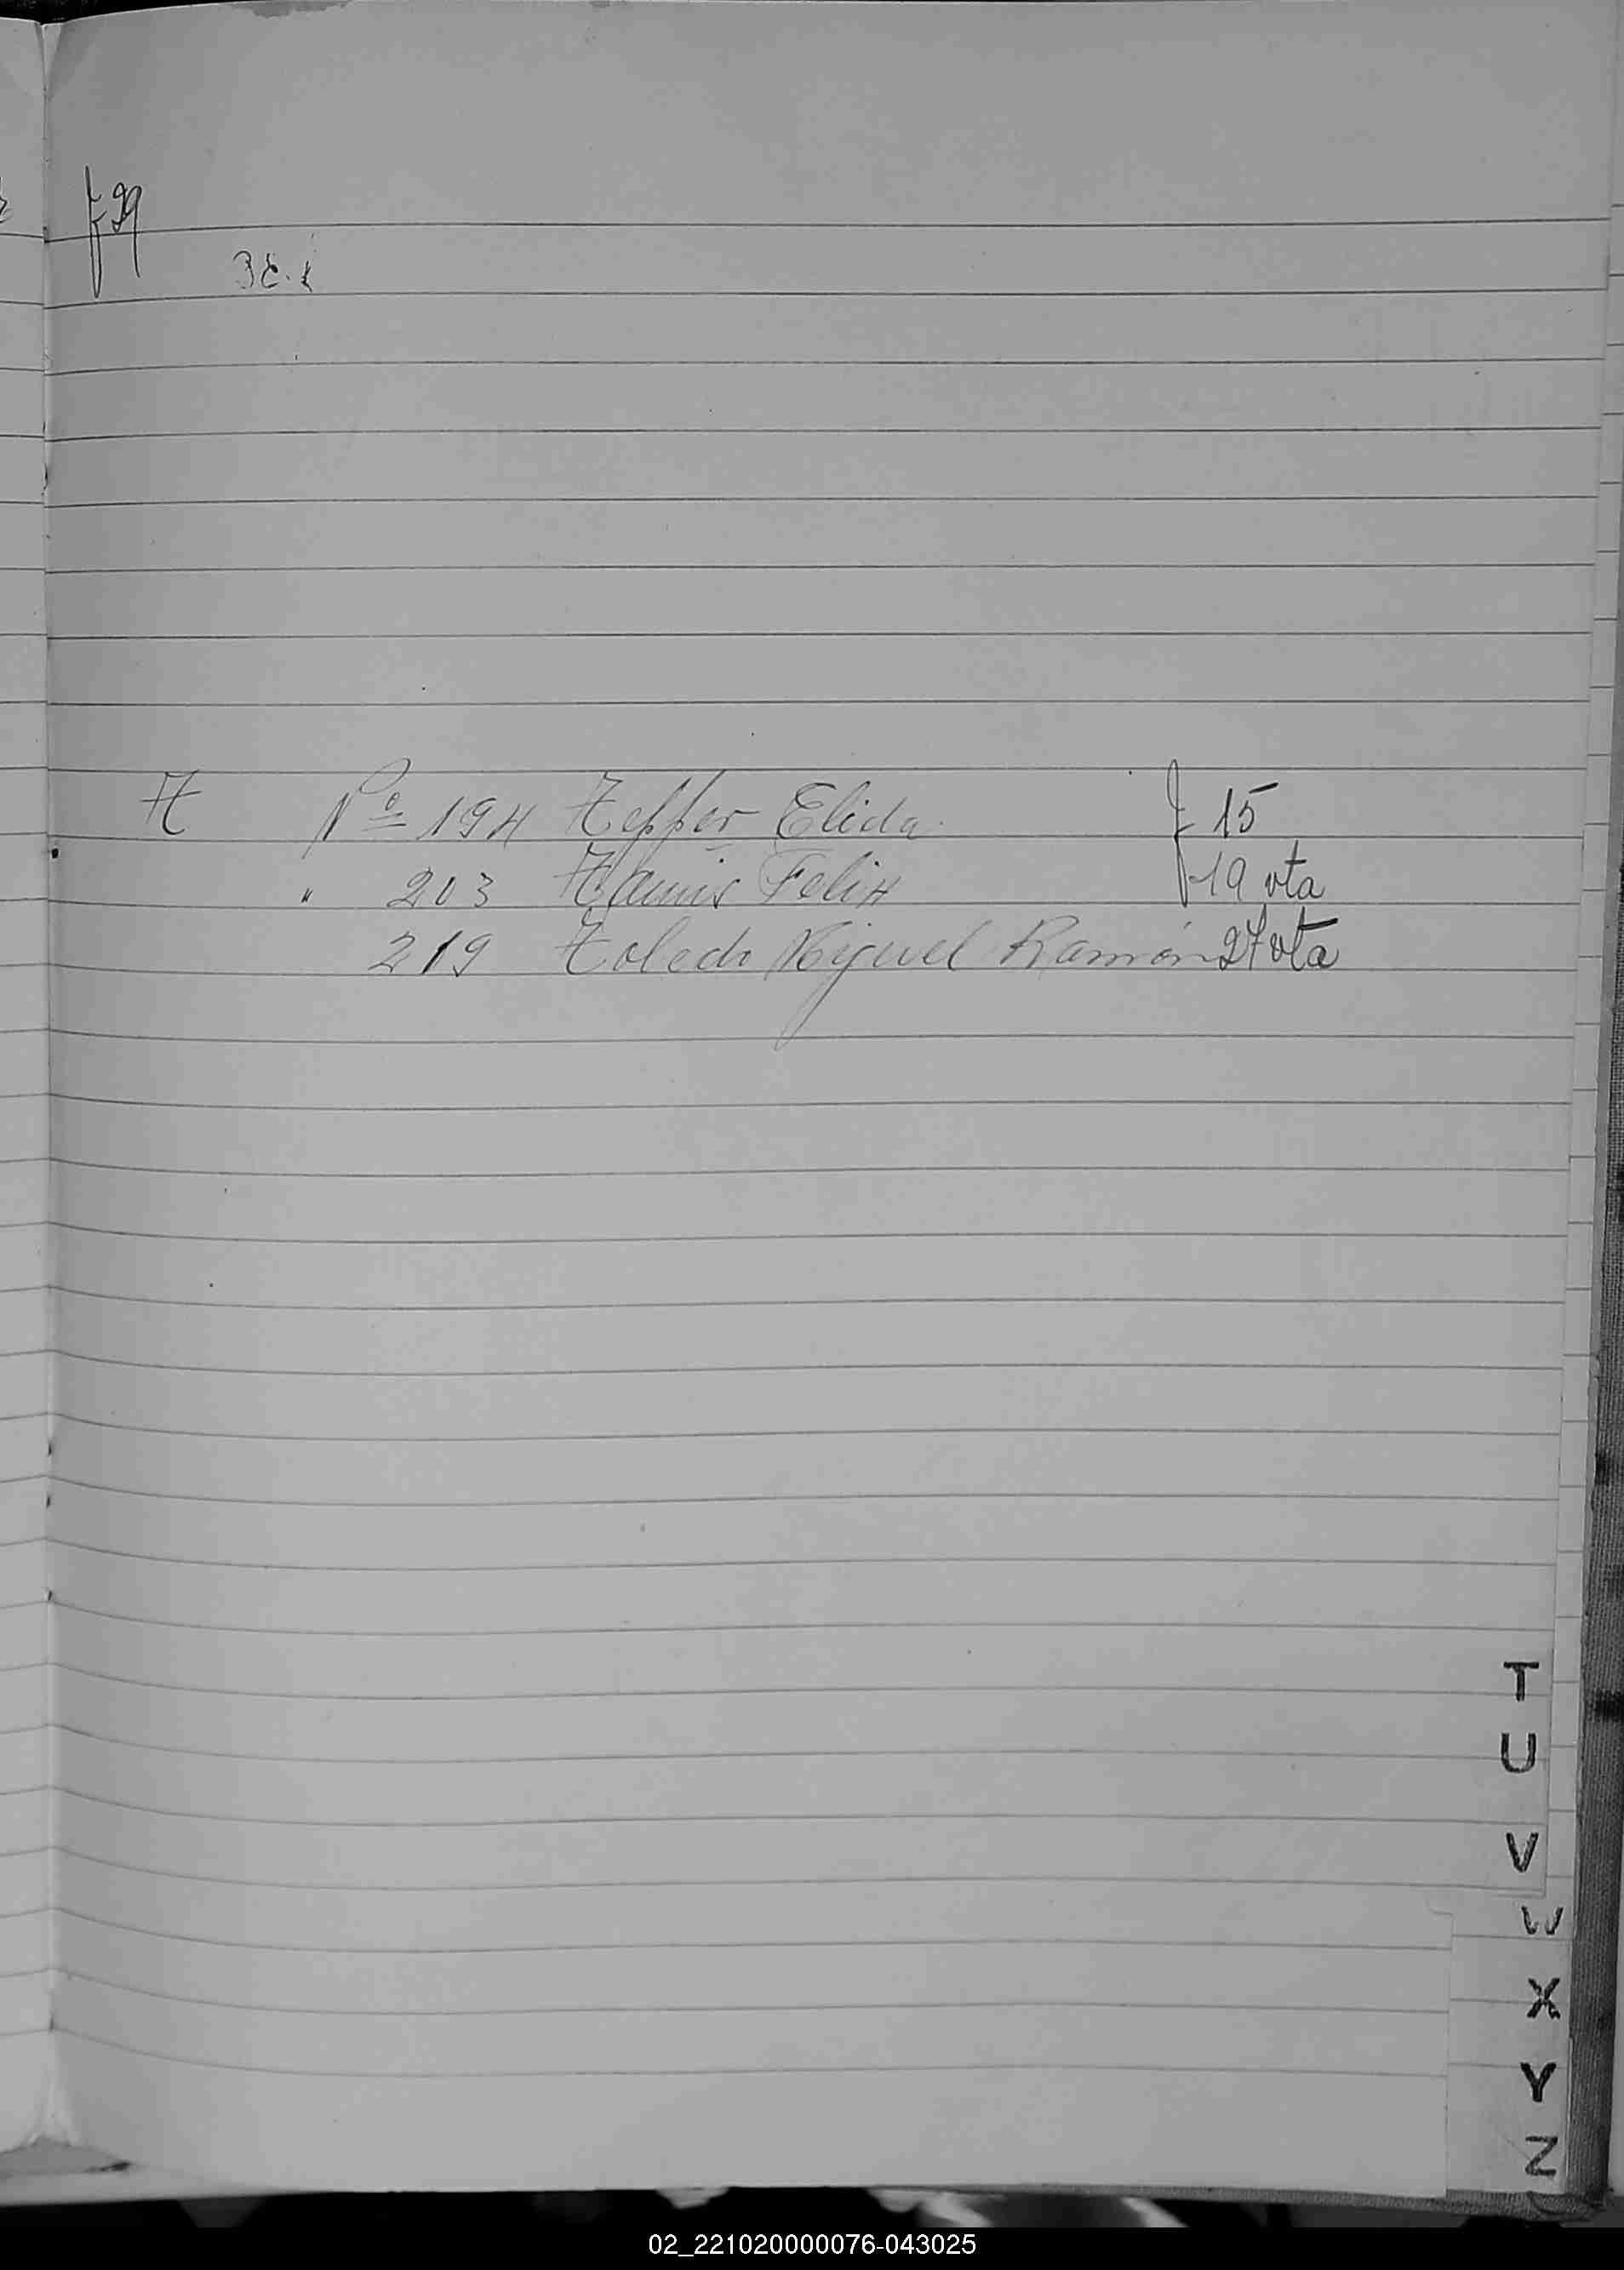 f 29
T Nº 194 Teffer Elida f 15
" 203 Felix f 19 vta
219 Toledo Miguel Ramón 27 vta
T
U
V
W
X
Y
Z
02_221020000076-043025